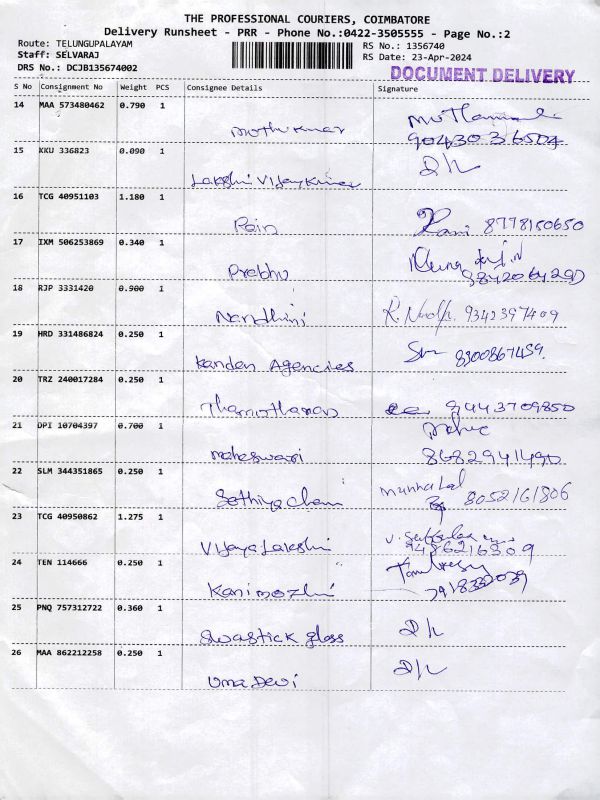 THE PROFESSIONAL COURIERS, COIMBATORE
Delivery Runsheet - PRR - Phone No.:0422-3505555 - Page No.:2
Route: TELUNGUPALAYAM RS No.: 1356740
Staff: SELVARAJ RS Date: 23-Apr-2024
DRS No.: DCJB135674002
DOCUMENT DELIVERY
S No Consignment No Weight PCS Consignee Details Signature
14 MAA 573480462 0.790 1
Muthukumar
9043036504
15 KKU 336823 0.090 1
D/L
Lakshmi Vijaykumar
16 TCG 40951103 1.180 1
Rani 8778150650
17 IXM 506253869 0.340 1
Prebhu
9842064290
18 RJP 3331420 0.900 1
Nandhini 9342397409
19 HRD 331486824 0.250 1
8300867459
Kanden Agencies
20 TRZ 240017284 0.250 1
Thamotharan 9443709850
21 DPI 10704397 0.700 1
maheswari 8682941490
22 SLM 344351865 0.250 1
Munna Lal
8052161806
23 TCG 40950862 1.275 1
Vijaya Lakshmi 9486216509
24 TEN 114666 0.250 1
Kanimozhi
25 PNQ 757312722 0.360 1
Swastick gloss D/L
26 MAA 862212258 0.250 1
D/L
Uma Devi